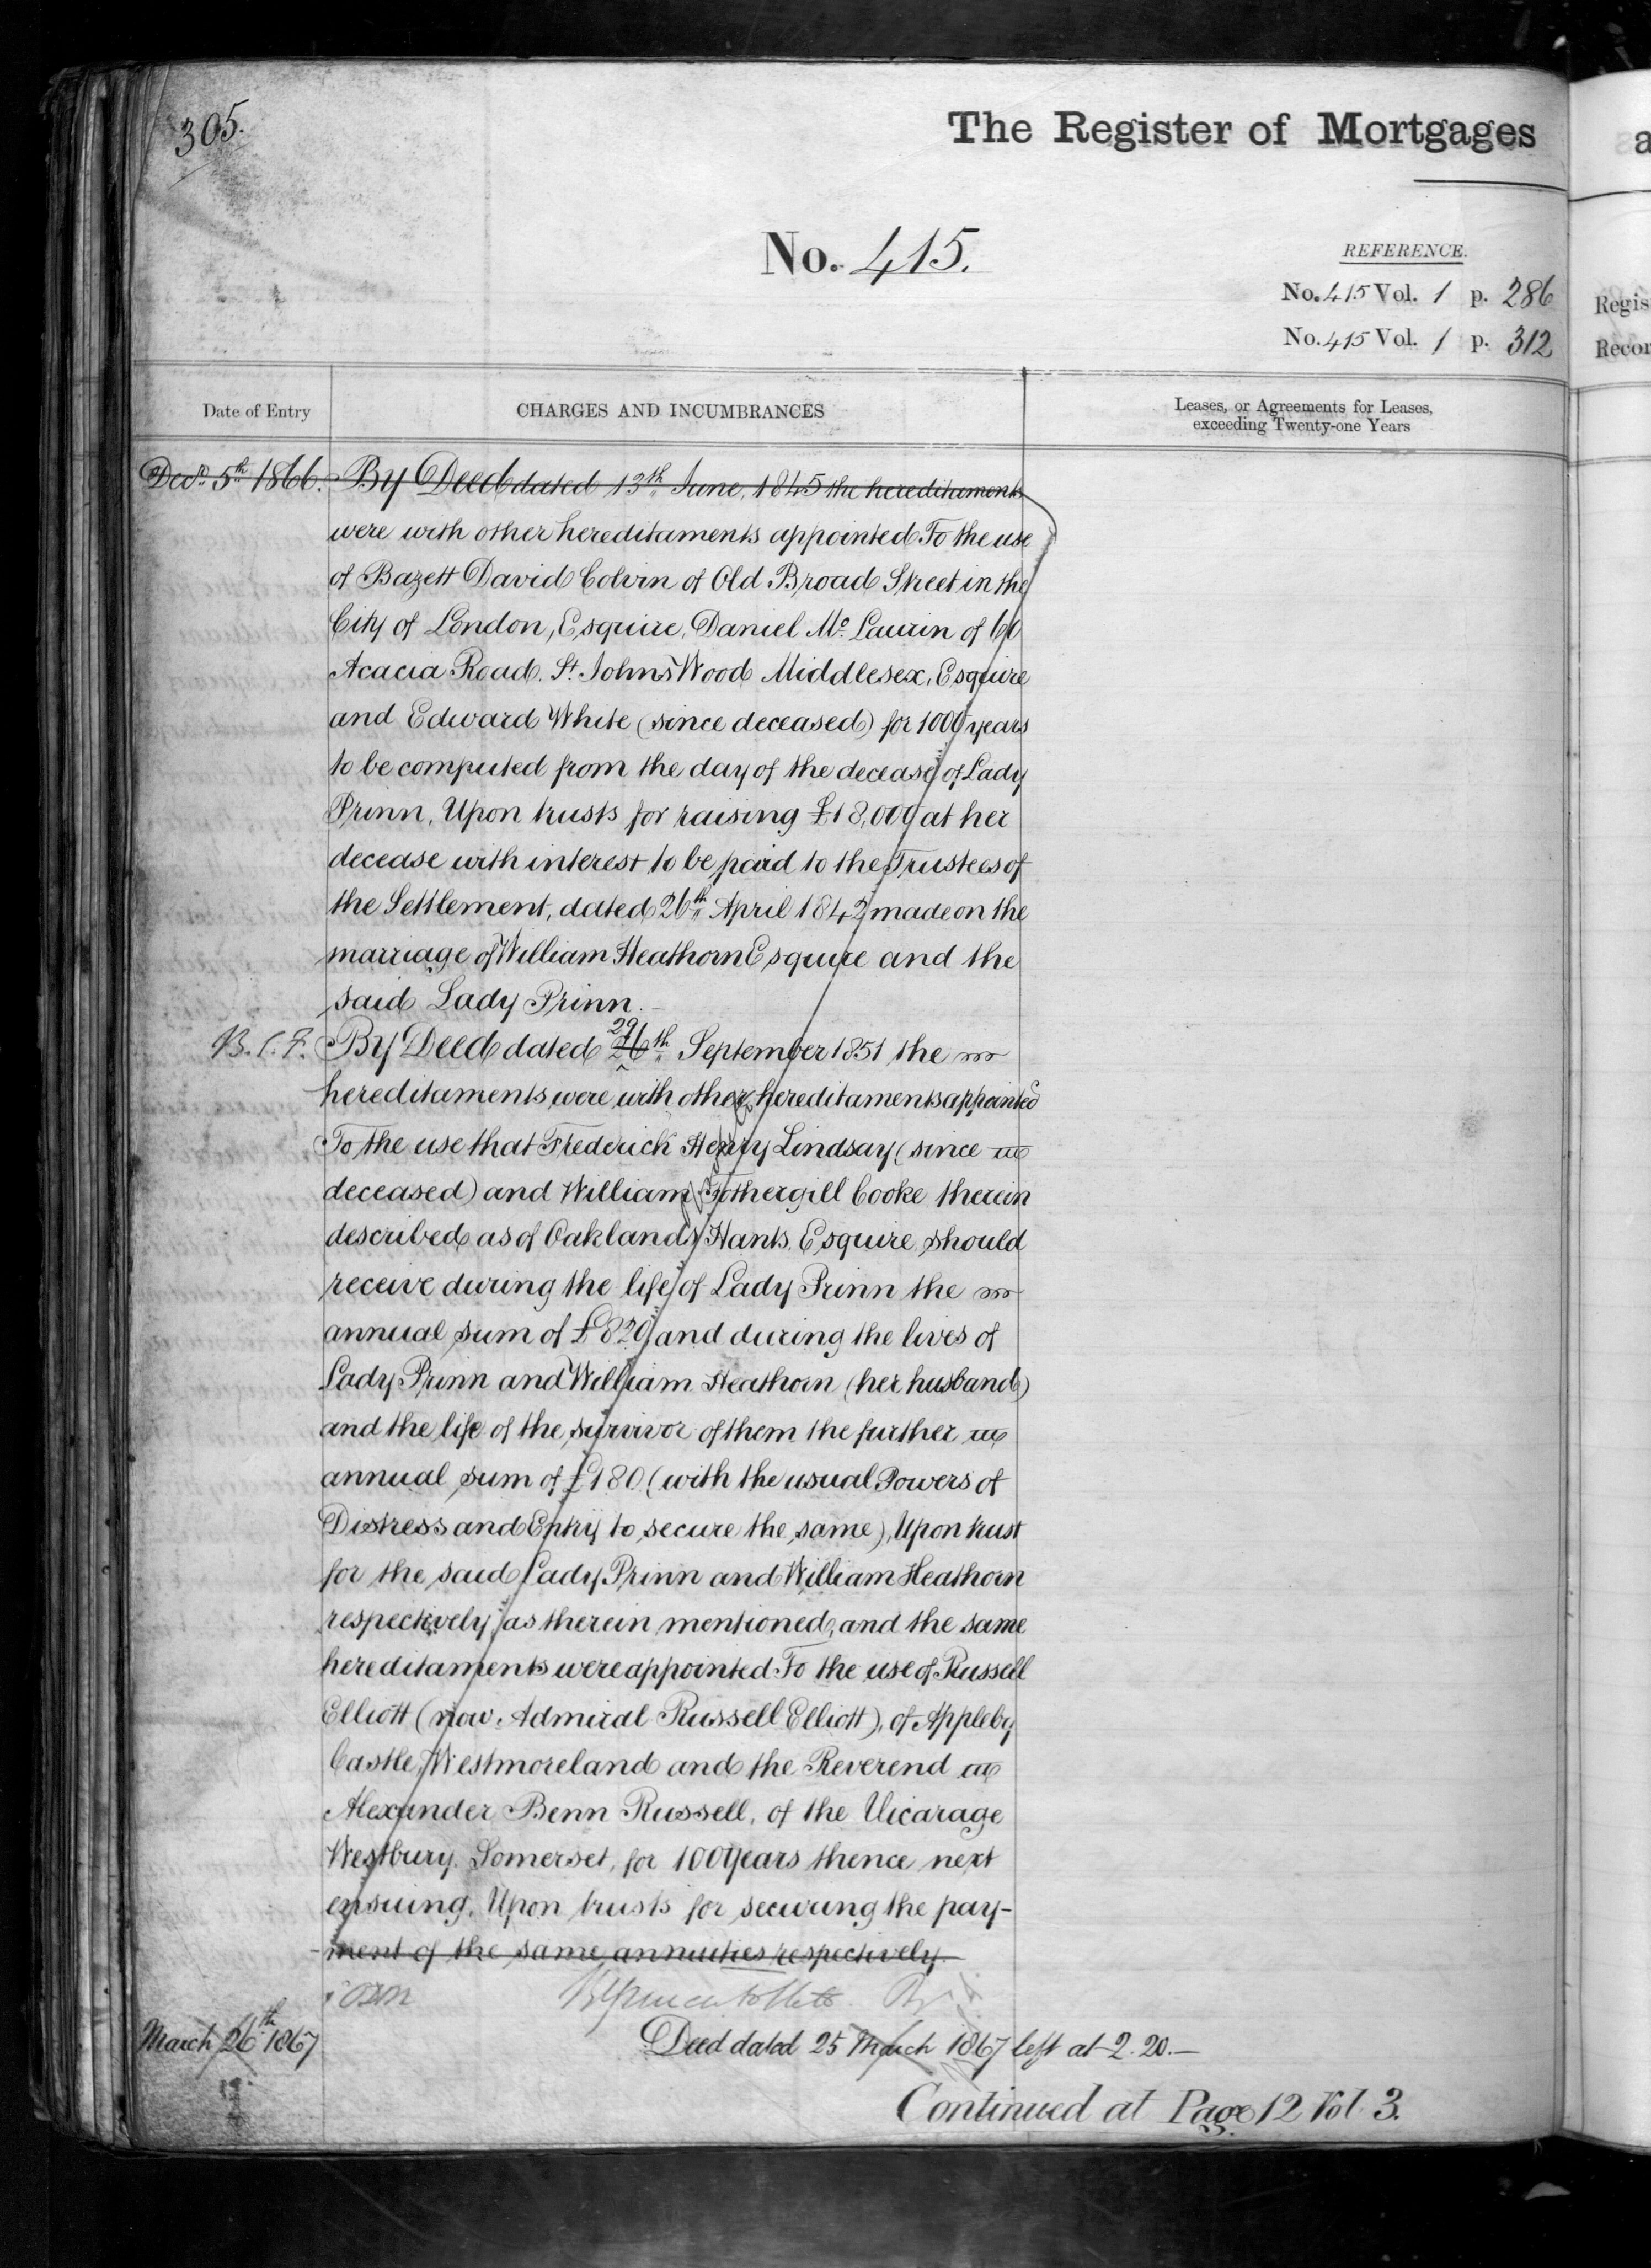 305.
The Register of Mortgages
No. 415.
REFERENCE.
No. 415 Vol. 1 p. 286
No. 415 Vol. 1 p. 312
Regis
Recor
Date of Entry
CHARGES AND INCUMBRANCES
Leases, or Agreements for Leases,
exceeding Twenty-one Years
Decr. 5th 1866. By Deed dated 13th June, 1845 the hereditaments
were with other hereditaments appointed To the use
of Bazett David Colvin of Old Broad Street in the
City of London, Esquire, Daniel Mc. Laurin of 60
Acacia Road. St. Johns Wood Middlesex, Esquire
and Edward White (since deceased) for 1000 years
to be computed from the day of the decease of Lady
Prinn, Upon trusts for raising £18,000 at her
decease with interest to be paid to the Trustees of
the Settlement, dated 26th April 1842 made on the
marriage of William Heathorn Esquire and the
said Lady Prinn.
By Deed dated 26th 29 September 1851 the
hereditaments were with other hereditaments appointed
To the use that Frederick Henry Lindsay (since
deceased) and William Fothergill Cooke therein
described as of Oaklands Hants. Esquire should
receive during the life of Lady Prinn the
annual sum of £820 and during the lives of
Lady Prinn and William Heathorn (her husband)
and the life of the survivor of them the further
annual sum of £180 (with the usual Powers of
Distress and Entry to secure the same), Upon trust
for the said Lady Prinn and William Heathorn
respectively as therein mentioned, and the same
hereditaments were appointed To the use of Russell
Elliott (now Admiral Russell Elliott), of Appleby
Castle, Westmoreland and the Reverend
Alexander Benn Russell, of the Vicarage
Westbury. Somerset, for 100 years thence next
ensuing, Upon trusts for securing the pay-
ment of the same annuities respectively.
March 26th 1867
Deed dated 25 March 1867 left at 2.20.—
Continued at Page 12 Vol. 3.